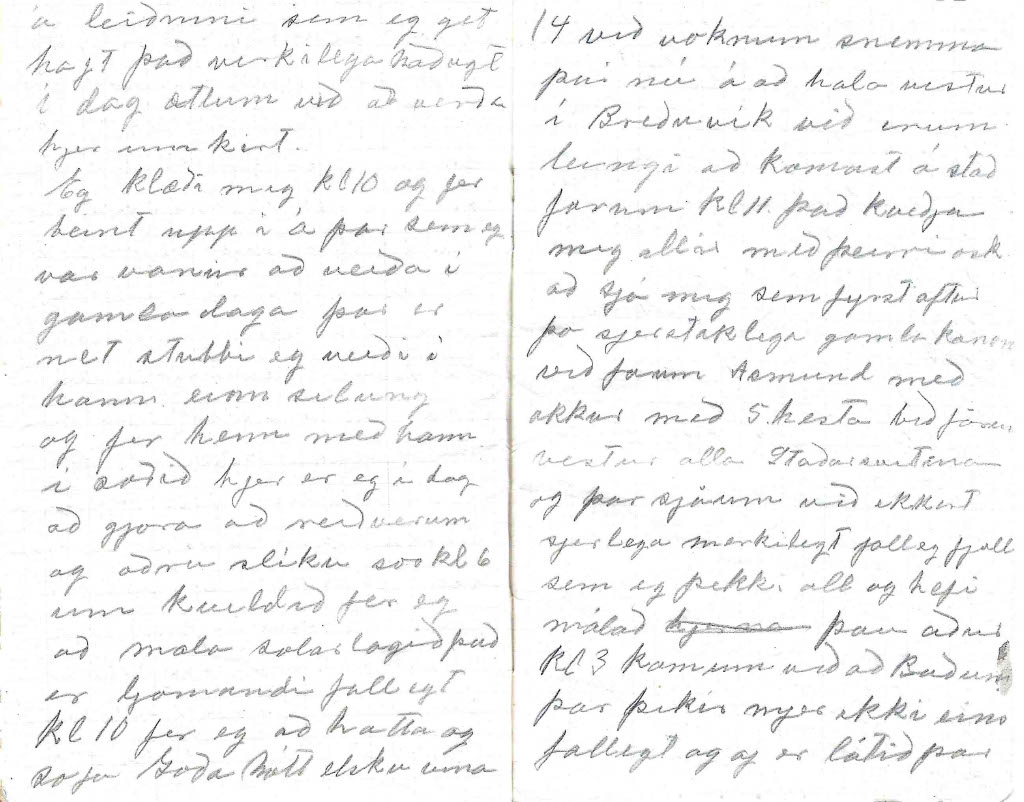 á leiðinni sem eg get
hagt það verkilega háðugt
í dag ætlum við að verða
hjer um kirt.
Eg klæði mig kl 10 og fer
beint upp í á þar sem eg
var vanur að veiða í
gamla daga þar er
net stubbi eg veiði í
hann einn silung
og fer henn með hann
í soðið hjer er eg í dag
að gjora að reiðverum
og oðru slíku soo kl 6
um kveldið fer eg
að mala solarlagið það
er ljomandi fallegt
kl 10 fer eg að hatta og
sofa Goða Nótt elsku vina
14 við voknum snemma
þvi nú á að hala vestur
í Breðuvik við erum
leingi að komast á stað
forum kl 11. það kveðja
mig allir með þeirri osk
að sjá mig sem fyrst aftur
þo sjerstaklega gamla konan
við faum Asmund með
okkur með 5. hesta við förum
vestur alla Staðarsveitina
og þar sjáum við ekkert
sjerlega merkilegt falleg fjoll
sem eg þekki oll og hefi
málað þau aður
kl 3 komum við að Buðum
þar þikir mjer ekki eins
fallegt og af er látið þar